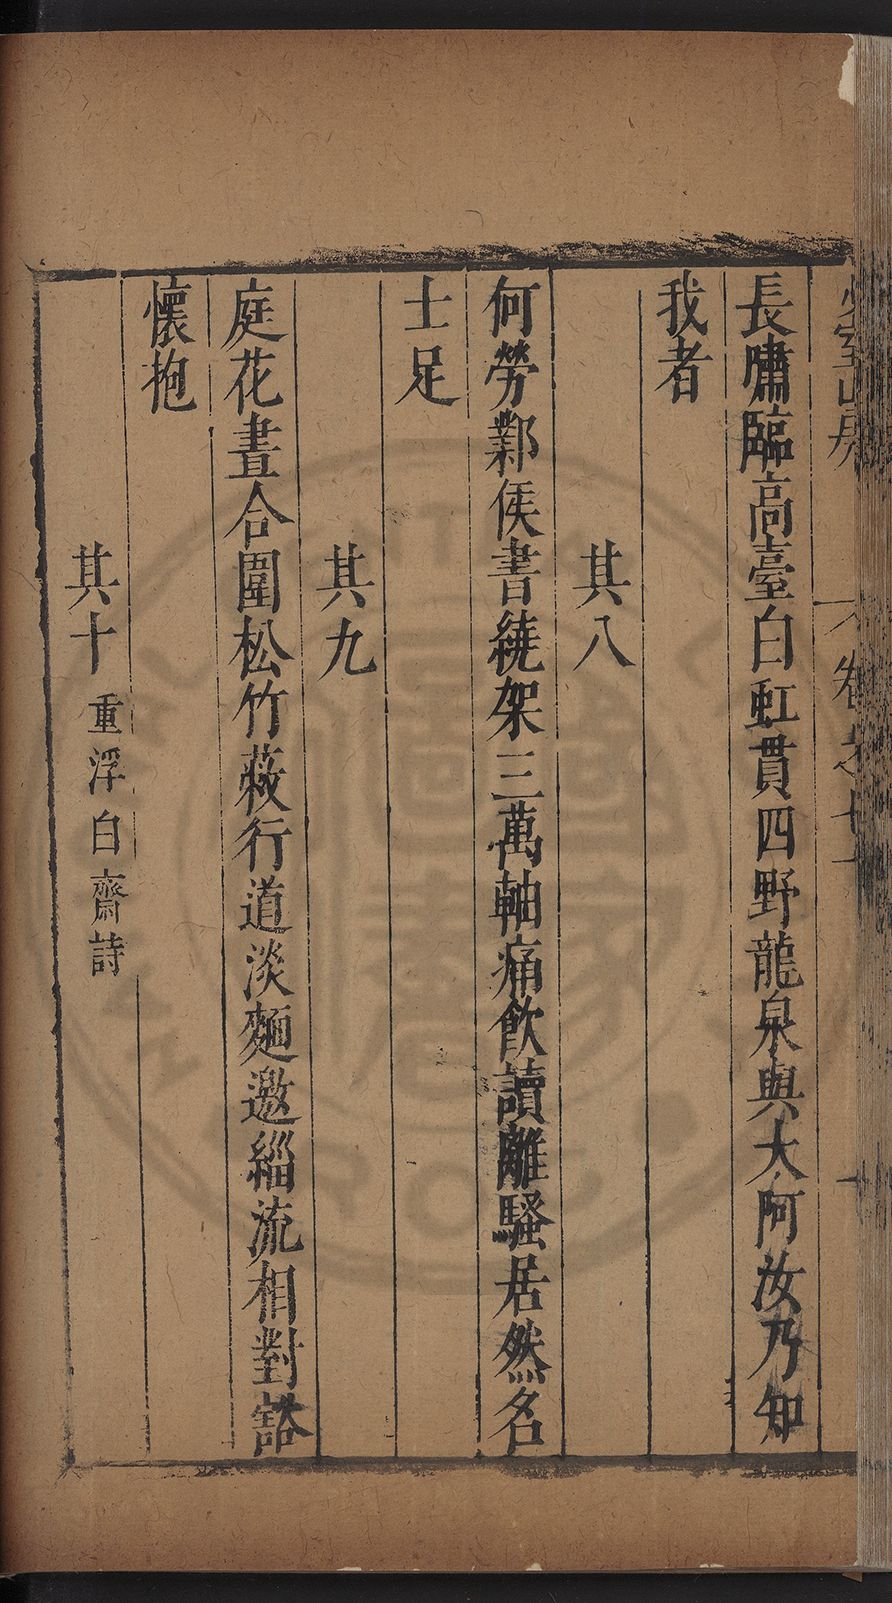 少室山房 卷之七十
長嘯臨高臺白虹貫四野龍泉與太阿汝乃知
我者
其八
何勞鄴侯書繞架三萬軸痛飲讀離騷居然名
士足
其九
庭花晝合圍松竹蔽行道淡麵邀緇流相對豁
懷抱
其十 重浮白齋詩